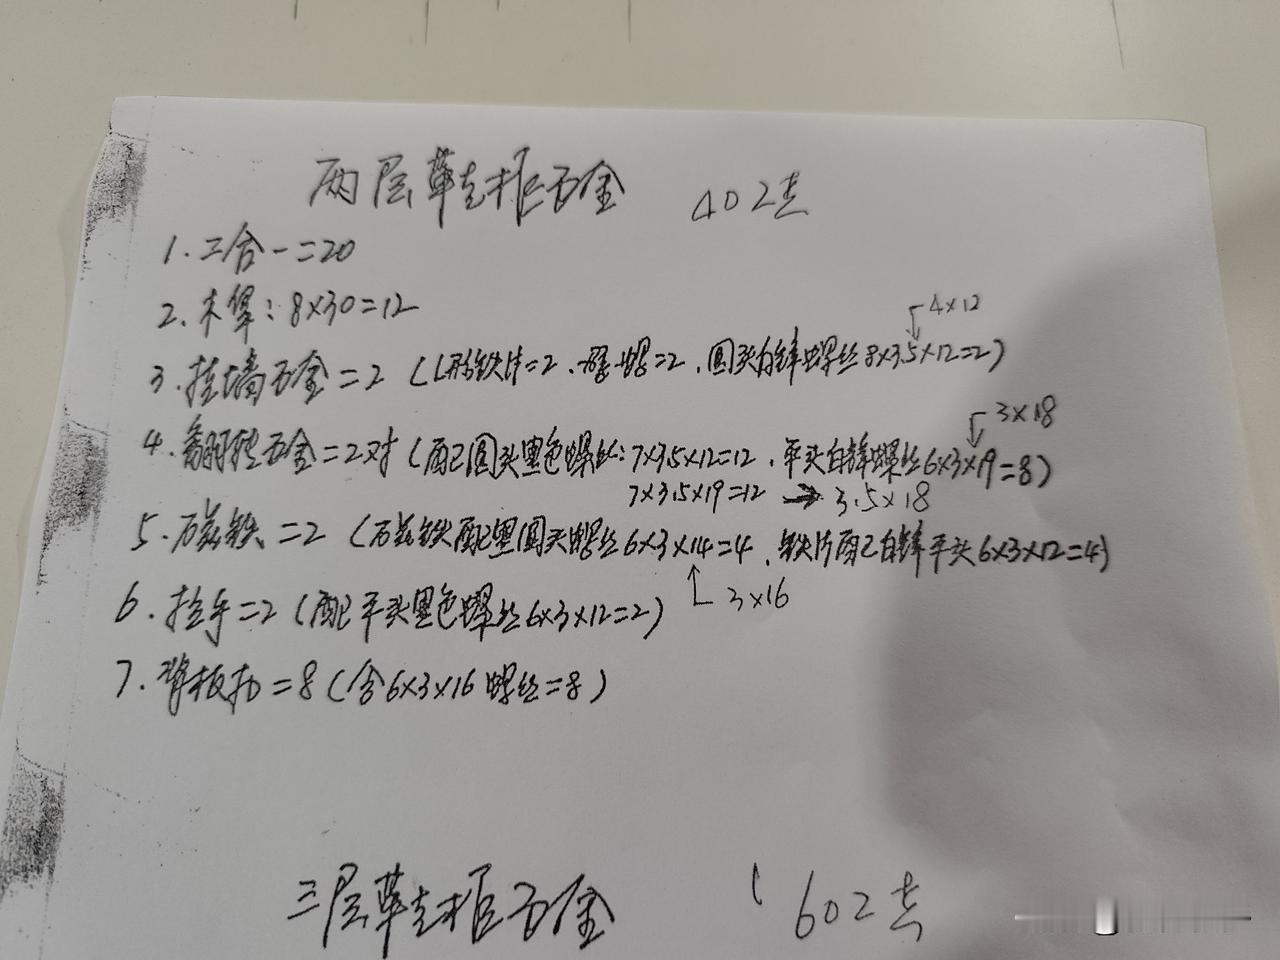 两层鞋柜五金 402志
1.三合一=20
2.木榫:8×30=12
4×12
3.挂墙五金=2(L形铁片=2.膨螺=2.圆头白锌螺丝8×3.5×12=2)
3×18
4.翻转五金=2对(配圆头黑色螺丝:7×3.5×12=12.平头白锌螺丝6×3×19=8)
7×3.5×19=12 → 3.5×18
5.磁铁=2(磁铁配黑圆头螺丝6×3×14=4.铁片配白锌平头6×3×12=4)
3×16
6.拉手=2(配平头黑色螺丝6×3×12=2)
7.背板扣=8(含6×3×16螺丝=8)
三层鞋柜五金 602